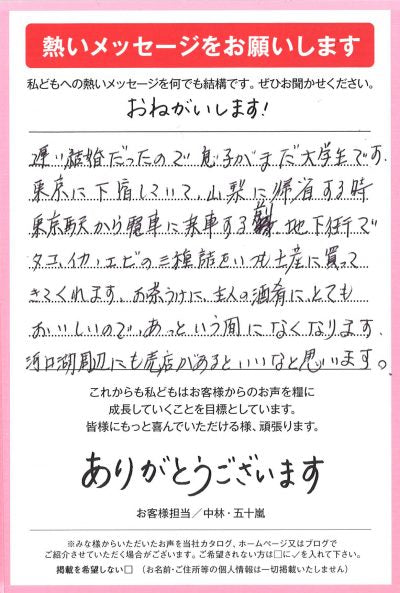 熱いメッセージをお願いします
私どもへの熱いメッセージを何でも結構です。ぜひお聞かせください。
おねがいします!
遅い結婚だったので息子がまだ大学生です.
東京に下宿していて、山梨に帰省する時
東京駅から電車に乗車する前、地下街で
タコ、イカ、エビの三種詰をいつも土産に買って
きてくれます。お茶うけに、主人の酒肴に、とても
おいしいので、あっという間になくなります.
河口湖周辺にも売店があるといいなと思います。
これからも私どもはお客様からのお声を糧に
成長していくことを目標としています。
皆様にもっと喜んでいただける様、頑張ります。
ありがとうございます
お客様担当/中林・五十嵐
※みな様からいただいたお声を当社カタログ、ホームページ又はブログで
ご紹介させていただく場合がございます。ご希望されない方は□に✓を入れて下さい。
掲載を希望しない□ (お名前・ご住所等の個人情報は一切掲載いたしません)